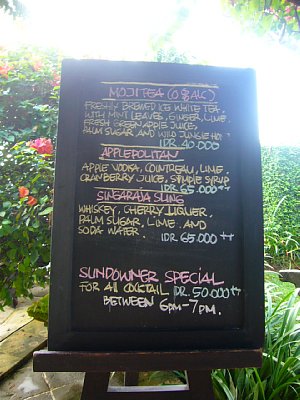 MOJITEA (0% ALC)
FRESHLY BREWED ICE WHITE TEA
WITH MINT LEAVES, GINGER, LIME,
FRESH GREEN APPLE JUICE,
PALM SUGAR AND WILD JUNGLE HO
IDR 40.000
APPLEPOLITAN
APPLE VODKA, COUNTREAU, LIME
CRANBERRY JUICE, SIMPLE SYRUP
IDR 65.000 ++
SINGARAJA SLING
WHISKEY, CHERRY LIQUER,
PALM SUGAR, LIME AND
SODA WATER. IDR 65.000 ++
SUNDOWNER SPECIAL
FOR All COCKTAIL IDR. 50.000 ++
BETWEEN 6PM-7PM.